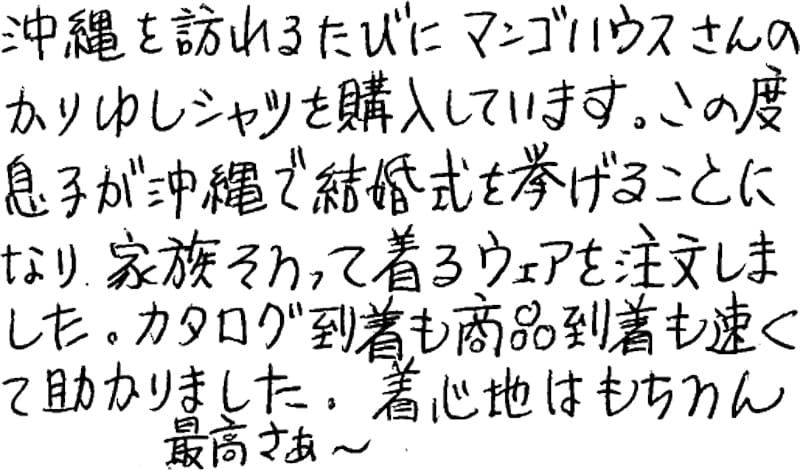 沖縄を訪れるたびにマンゴハウスさんの
かりゆしシャツを購入しています。この度
息子が沖縄で結婚式を挙げることに
なり、家族そろって着るウェアを注文しま
した。カタログ到着も商品到着も速く
て助かりました。着心地はもちろん
最高さぁ~